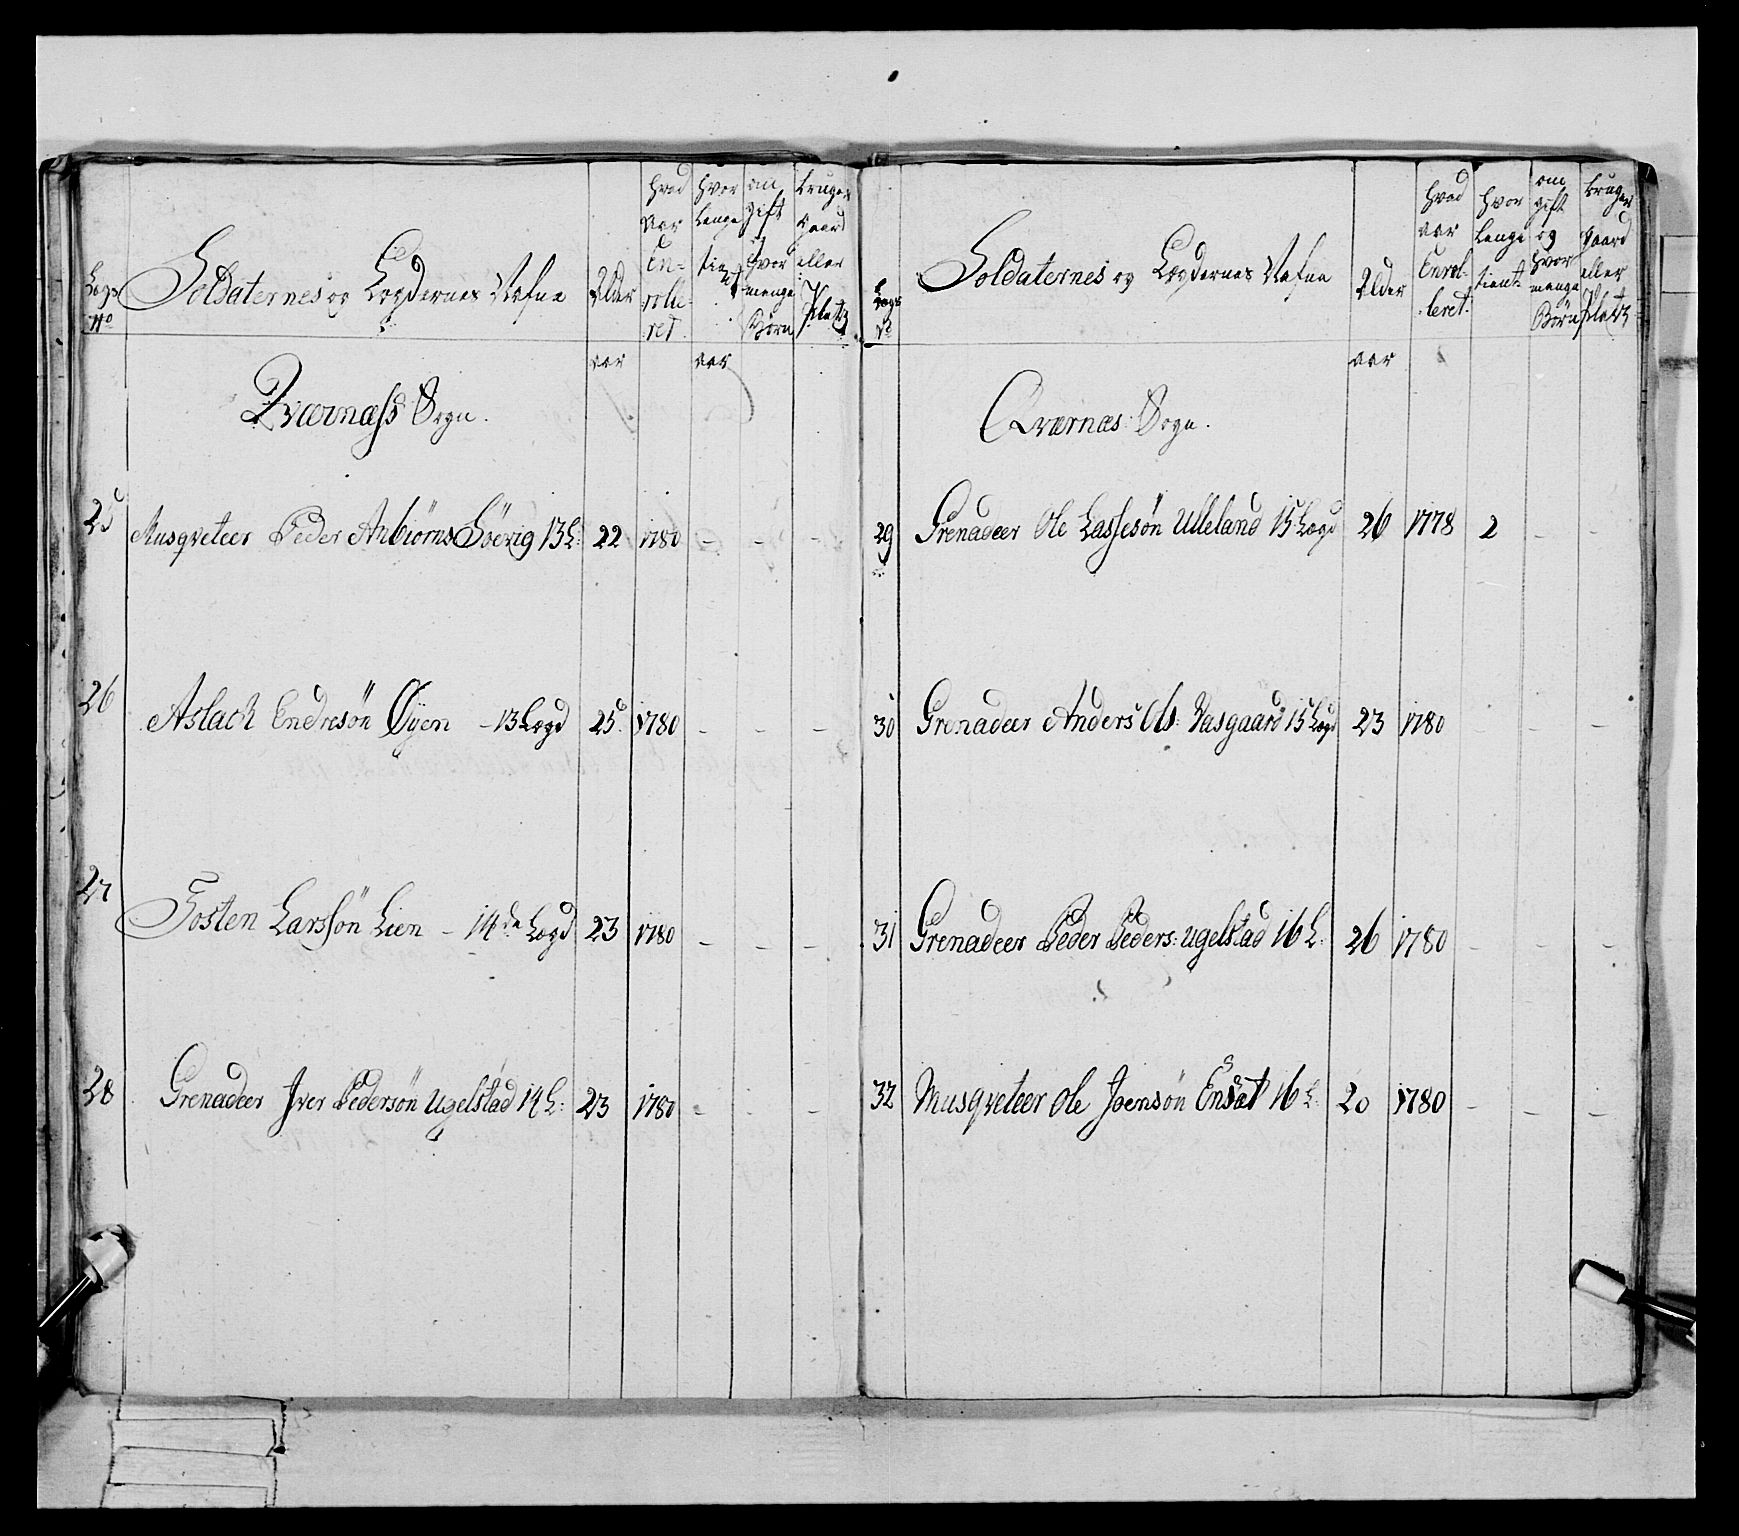 Legs No
Soldaternes og Legdernes Nafne
Alder
hvad Aar En- rolle- ret
hvor lenge tient
om gift og hvor mange Børn
bruger gaard eller Platz
aar
aar
Qværnæss Sogn.
25 Musqveteer Peder Anbiørns: 13 L: 22 1780 - - -
26 Aslach Endresøn Øyen - 13 Legd 25 1780 - - -
27 Tosten Larssøn Lien - 14de Legd 23 1780 - - -
28 Grenadeer Iver Pedersøn Ugelstad 14 L: 23 1780 - - -
Legs No
Soldaternes og Legdernes Nafne
Alder
hvad aar Enrol- leret.
hvor lenge tient
om gift og hvor mange Børn
bruger gaard eller Platz
aar
Qværnæs Sogn.
29 Grenadeer Ole Lassesøn Ulleland 15 Legd 26 1778 2 - -
30 Grenadeer Anders Ols: Vasgaard 15 Legd 23 1780 - - -
31 Grenadeer Peder Peders: Ugelstad 16 L: 26 1780 - - -
32 Musqveteer Ole Joensøn Ensat 16 L: 20 1780 - - -